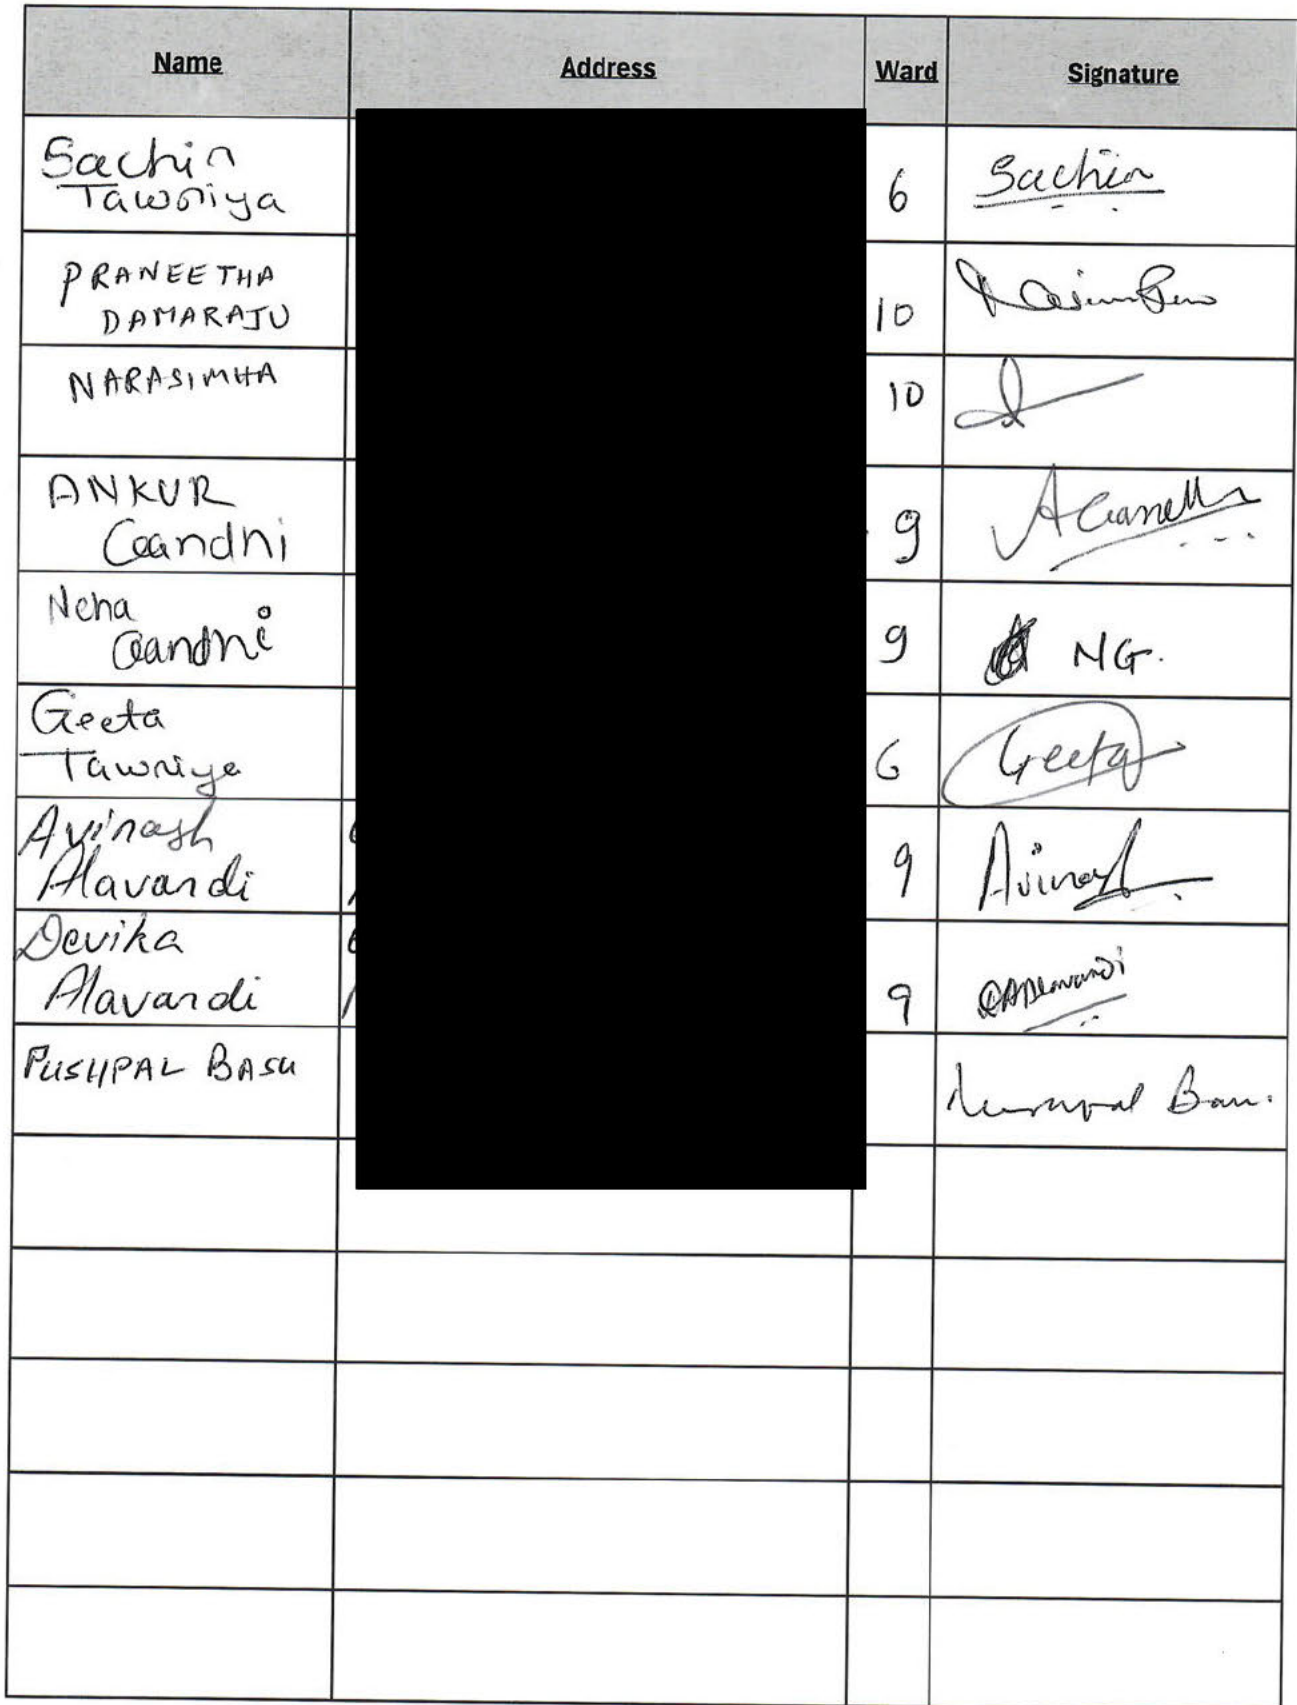 Name Address Ward Signature
Sachin
Tawniya
6 Sachin
PRANEETHA
DAMARAJU
10
NARASIMHA
10
ANKUR
Gandhi
9
Neha
Gandhi
9 NG.
Geeta
Tawniya
6 Geeta
Avinash
Alavandi
9 Avinash
Devika
Alavandi
9
PUSHPAL BASU